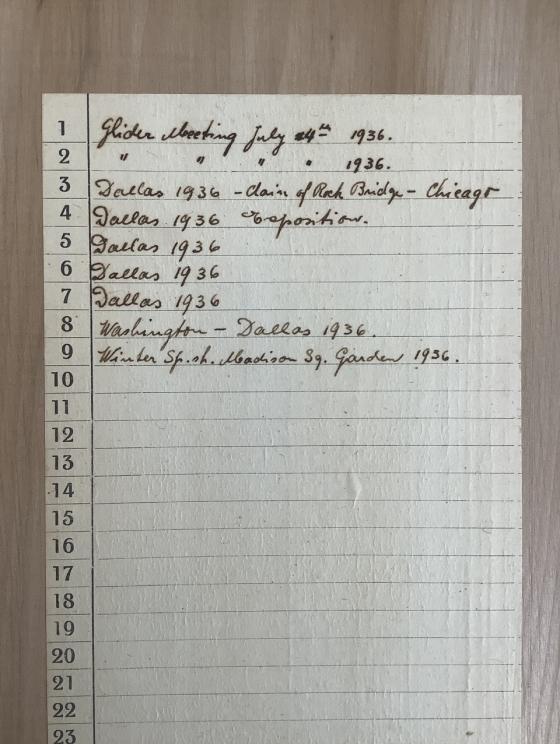 1 Glider Meeting July 4th 1936.
2 " " " " 1936.
3 Dallas 1936 - of Rock Bridge - Chicago
4 Dallas 1936 Exposition.
5 Dallas 1936
6 Dallas 1936
7 Dallas 1936
8 Washington - Dallas 1936.
9 Winter Sp. sh. Madison Sq. Garden 1936.
10
11
12
13
14
15
16
17
18
19
20
21
22
23